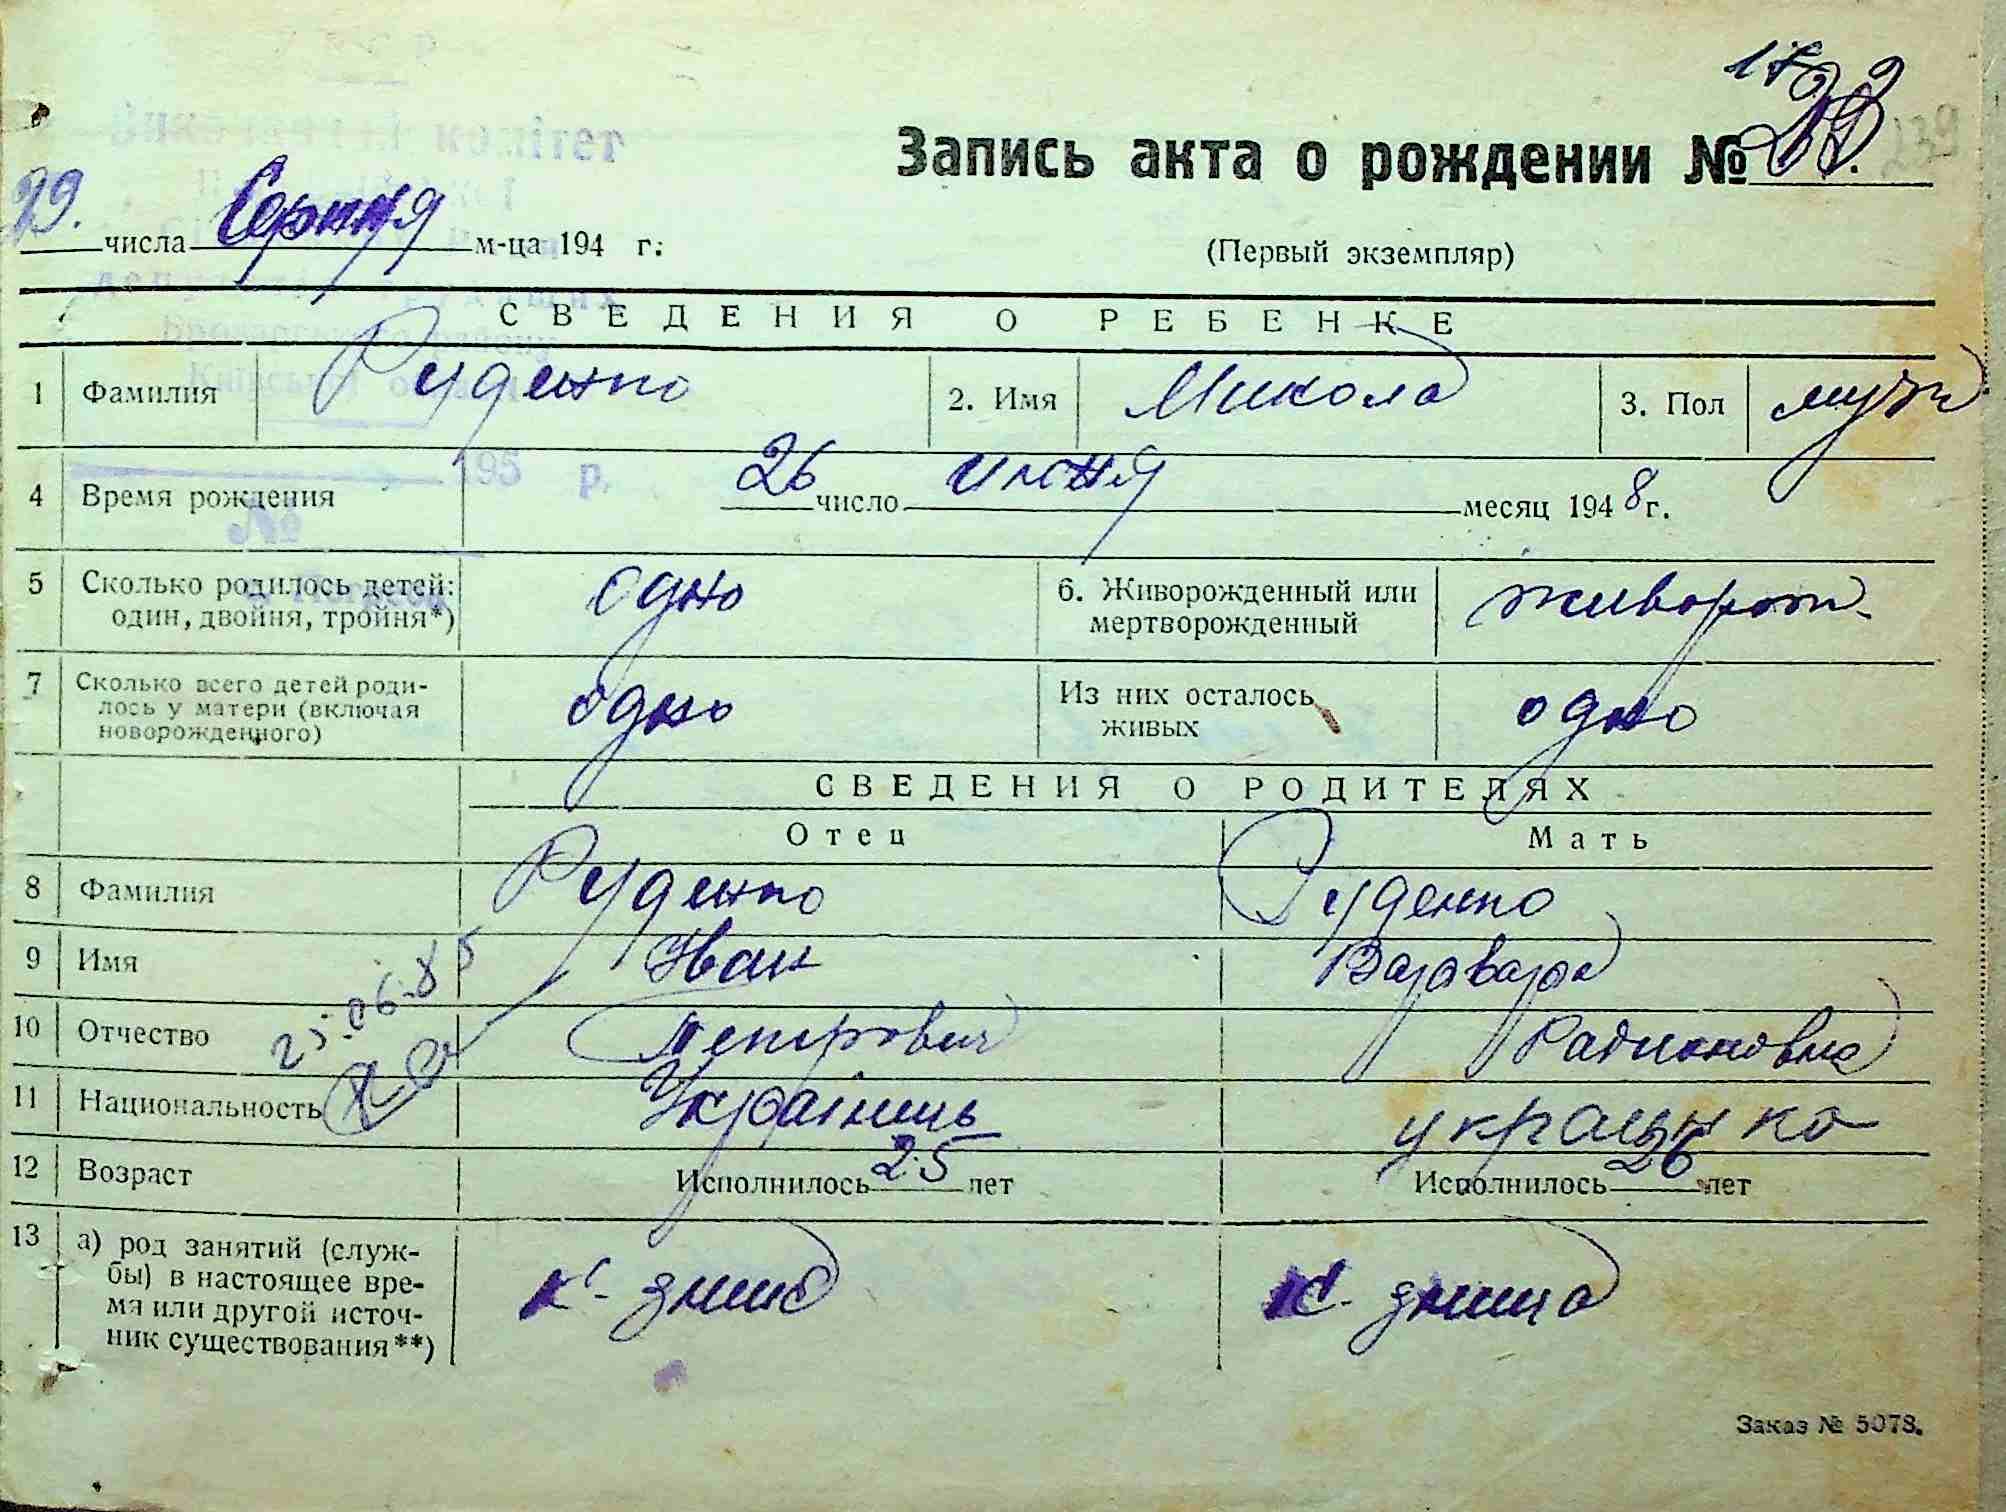 Виконавчий комітет
Запись акта о рождении №
239
29. числа Серпня м-ца 194 г.
(Первый экземпляр)
депутатів трудящих
СВЕДЕНИЯ О РЕБЕНКЕ
Броварського району
Київської області
1 Фамилия Руденко 2. Имя Микола 3. Пол муж
195 р.
4 Время рождения 26 число июня месяц 1948 г.
№
5 Сколько родилось детей: один, двойня, тройня*) одно 6. Живорожденный или мертворожденный живорож.
7 Сколько всего детей родилось у матери (включая новорожденного) одно Из них осталось живых одно
СВЕДЕНИЯ О РОДИТЕЛЯХ
Отец Мать
8 Фамилия Руденко Руденко
9 Имя Иван Варвара
10 Отчество Петрович Радионовна
25.06.85
11 Национальность Українець украинка
12 Возраст Исполнилось 25 лет Исполнилось 26 лет
13 а) род занятий (службы) в настоящее время или другой источник существования**)
Заказ № 5078.